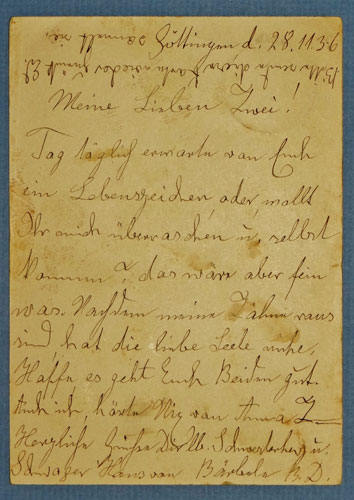 Göttingen d. 28.11.36
Bitte sende diese Karte wieder
sammelt sie
Meine Lieben Zwei!
Tag täglich erwarte von Euch
ein Lebenszeichen oder wollt
Ihr mich überraschen u. selbst
kommen? das wäre aber fein
was. Nachdem meine Zähne raus
sind, hat die liebe Seele ruhe,
Hoffe es geht Euch Beiden gut.
Auch ich hörte Nix von Anna Z
Herzliche Grüsse Dir lb. Schwesterherz u.
Schwager Hans von Bärbele B.D.